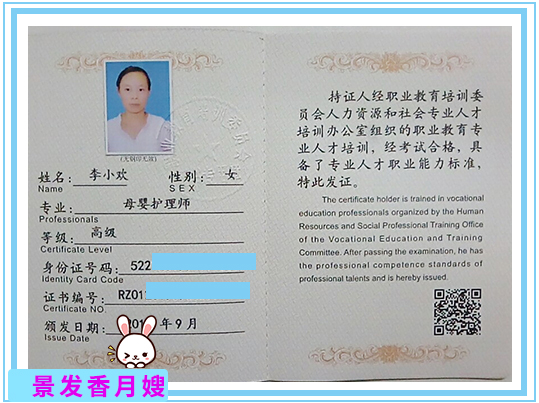 (无钢印无效)
姓名： 李小欢 性别： 女
Name SEX
专业： 母婴护理师
Professionals
等级： 高级
Certificate Level
身份证号码： 522
Identity Card Code
证书编号： RZ01
Certificate NO.
颁发日期： 201 年9月
Issue Date
持证人经职业教育培训委
员会人力资源和社会专业人才
培训办公室组织的职业教育专
业人才培训，经考试合格，具
备了专业人才职业能力标准，
特此发证。
The certificate holder is trained in vocational
education professionals organized by the Human
Resources and Social Professional Training Office
of the Vocational Education and Training
Committee. After passing the examination, he has
the professional competence standards of
professional talents and is hereby issued.
景发香月嫂